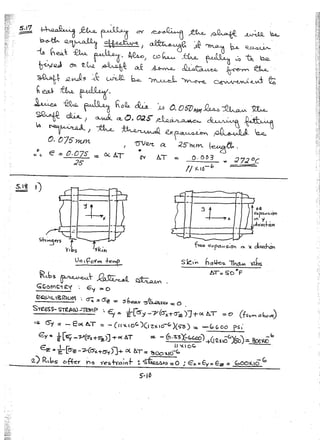 5.17 Heating the pulley or cooling the shaft will be
both equally effective, although it may be easier
to heat the pulley. Also, when the pulley is to be
fixed on the shaft at some distance from the
shaft ends it will be much more convenient to
heat the pulley.
Since the pulley hole dia is 0.050mm less than the
shaft dia, and a 0.025 clearance during fitting
is required, the thermal expansion should be
0.075 mm over a 25mm length.
∴ e = 0.075/25 = α ΔT or ΔT = 0.003/11×10⁻⁶ = 272°C
5.18 1)
y
x
Stringers
Ribs
Skin
Uniform temp
y
x
no expansion in y direction
free expansion in x direction
Skin hotter than ribs
ΔT = 50°F
Ribs prevent lateral strain.
GEOMETRY : εy = 0
EQUILIBRIUM : σx = σz = shear stresses = 0.
STRESS-STRAIN-TEMP : εy = 1/E[σy - ν(σx+σz)] + α ΔT = 0 (from above)
⇒ σy = - E α ΔT = -(11×10⁶)(12×10⁻⁶)(50) = -6600 psi
εx = 1/E[σx - ν(σy+σz)] + α ΔT = -(0.33)(-6600)/11×10⁶ + (12×10⁻⁶)(50) = 800×10⁻⁶
εz = 1/E[σz - ν(σx+σy)] + α ΔT = 800×10⁻⁶
2) Ribs offer no restraint : stresses = 0 ; εx = εy = εz = 600×10⁻⁶
5-10